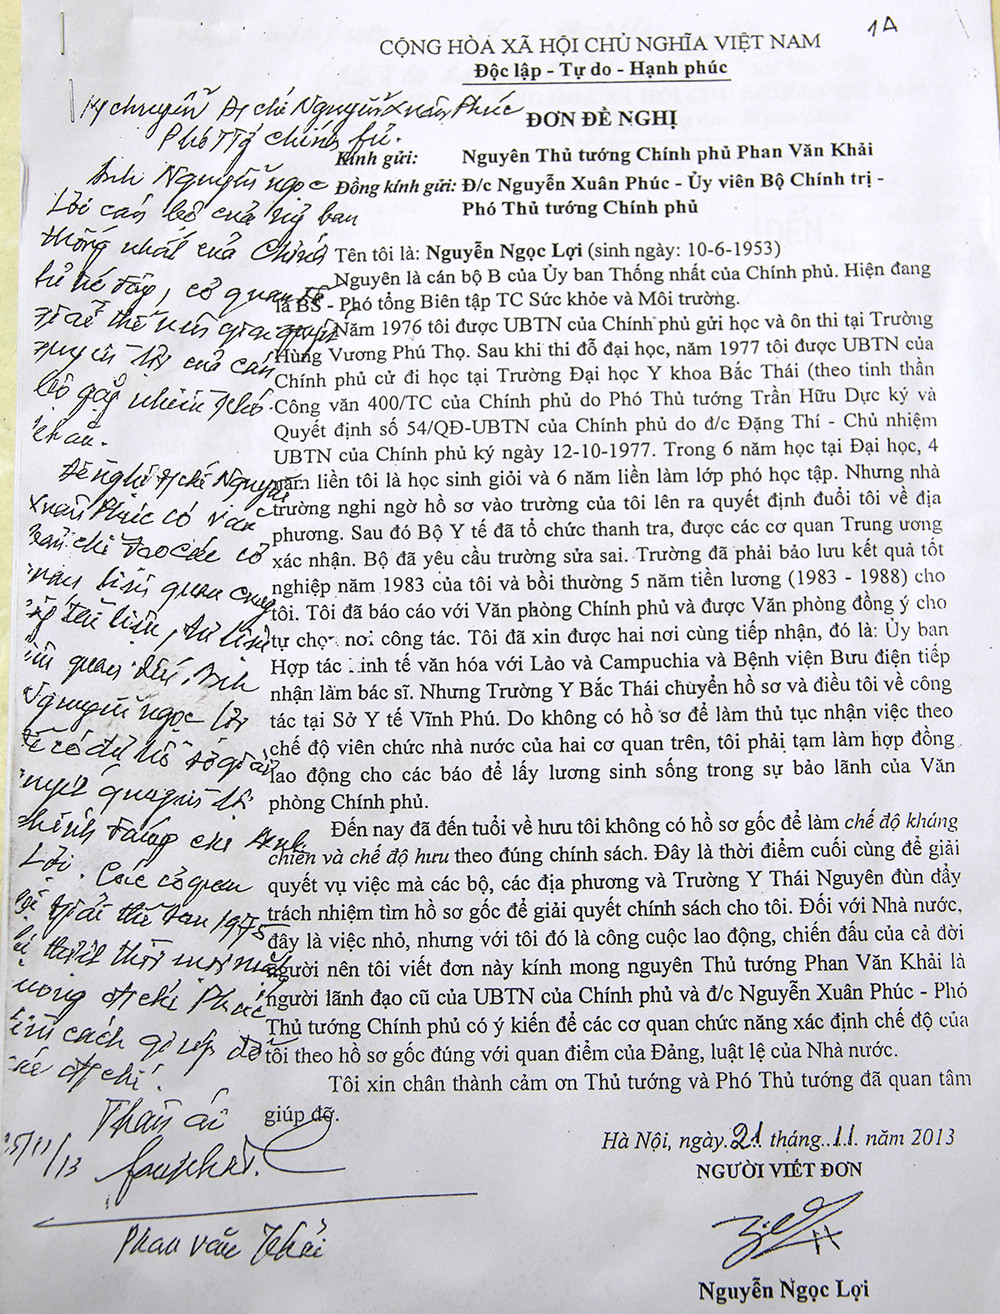 1A
CỘNG HÒA XÃ HỘI CHỦ NGHĨA VIỆT NAM
Độc lập - Tự do - Hạnh phúc
ĐƠN ĐỀ NGHỊ
Kính gửi: Nguyên Thủ tướng Chính phủ Phan Văn Khải
Đồng kính gửi: Đ/c Nguyễn Xuân Phúc - Ủy viên Bộ Chính trị -
Phó Thủ tướng Chính phủ
Tên tôi là: Nguyễn Ngọc Lợi (sinh ngày: 10-6-1953)
Nguyên là cán bộ B của Ủy ban Thống nhất của Chính phủ. Hiện đang
là BS - Phó tổng Biên tập TC Sức khỏe và Môi trường.
Năm 1976 tôi được UBTN của Chính phủ gửi học và ôn thi tại Trường
Hùng Vương Phú Thọ. Sau khi thi đỗ đại học, năm 1977 tôi được UBTN của
Chính phủ cử đi học tại Trường Đại học Y khoa Bắc Thái (theo tinh thần
Công văn 400/TC của Chính phủ do Phó Thủ tướng Trần Hữu Dực ký và
Quyết định số 54/QĐ-UBTN của Chính phủ do đ/c Đặng Thí - Chủ nhiệm
UBTN của Chính phủ ký ngày 12-10-1977. Trong 6 năm học tại Đại học, 4
năm liền tôi là học sinh giỏi và 6 năm liền làm lớp phó học tập. Nhưng nhà
trường nghi ngờ hồ sơ vào trường của tôi lên ra quyết định đuổi tôi về địa
phương. Sau đó Bộ Y tế đã tổ chức thanh tra, được các cơ quan Trung ương
xác nhận. Bộ đã yêu cầu trường sửa sai. Trường đã phải bảo lưu kết quả tốt
nghiệp năm 1983 của tôi và bồi thường 5 năm tiền lương (1983 - 1988) cho
tôi. Tôi đã báo cáo với Văn phòng Chính phủ và được Văn phòng đồng ý cho
tự chọn nơi công tác. Tôi đã xin được hai nơi cùng tiếp nhận, đó là: Ủy ban
Hợp tác kinh tế văn hóa với Lào và Campuchia và Bệnh viện Bưu điện tiếp
nhận làm bác sĩ. Nhưng Trường Y Bắc Thái chuyển hồ sơ và điều tôi về công
tác tại Sở Y tế Vĩnh Phú. Do không có hồ sơ để làm thủ tục nhận việc theo
chế độ viên chức nhà nước của hai cơ quan trên, tôi phải tạm làm hợp đồng
lao động cho các báo để lấy lương sinh sống trong sự bảo lãnh của Văn
phòng Chính phủ.
Đến nay đã đến tuổi về hưu tôi không có hồ sơ gốc để làm chế độ kháng
chiến và chế độ hưu theo đúng chính sách. Đây là thời điểm cuối cùng để giải
quyết vụ việc mà các bộ, các địa phương và Trường Y Thái Nguyên đùn đẩy
trách nhiệm tìm hồ sơ gốc để giải quyết chính sách cho tôi. Đối với Nhà nước,
đây là việc nhỏ, nhưng với tôi đó là công cuộc lao động, chiến đấu của cả đời
người nên tôi viết đơn này kính mong nguyên Thủ tướng Phan Văn Khải là
người lãnh đạo cũ của UBTN của Chính phủ và đ/c Nguyễn Xuân Phúc - Phó
Thủ tướng Chính phủ có ý kiến để các cơ quan chức năng xác định chế độ của
tôi theo hồ sơ gốc đúng với quan điểm của Đảng, luật lệ của Nhà nước.
Tôi xin chân thành cảm ơn Thủ tướng và Phó Thủ tướng đã quan tâm
giúp đỡ.
Hà Nội, ngày 21 tháng 11 năm 2013
NGƯỜI VIẾT ĐƠN
Nguyễn Ngọc Lợi
chuyển Đ/chí Nguyễn Xuân Phúc
Phó TTg Chính phủ.
Anh Nguyễn Ngọc
Lợi cán bộ của Uỷ ban
thống nhất của Chính
phủ
quyền lợi của cán
bộ gặp nhiều khó
khăn.
Đề nghị đ/chí Nguyễn
Xuân Phúc có văn
bản chỉ đạo các cơ
quan liên quan cung
cấp tài liệu, tư liệu
liên quan đến Anh
Nguyễn Ngọc Lợi
để có đủ hồ sơ giải
quyết
chính đáng cho Anh
Lợi. Các cơ quan
giải thể sau 1975
mong đ/chí Phúc
tìm cách giúp đỡ
các đ/chí.
Thân ái
25/11/13
Phan Văn Khải